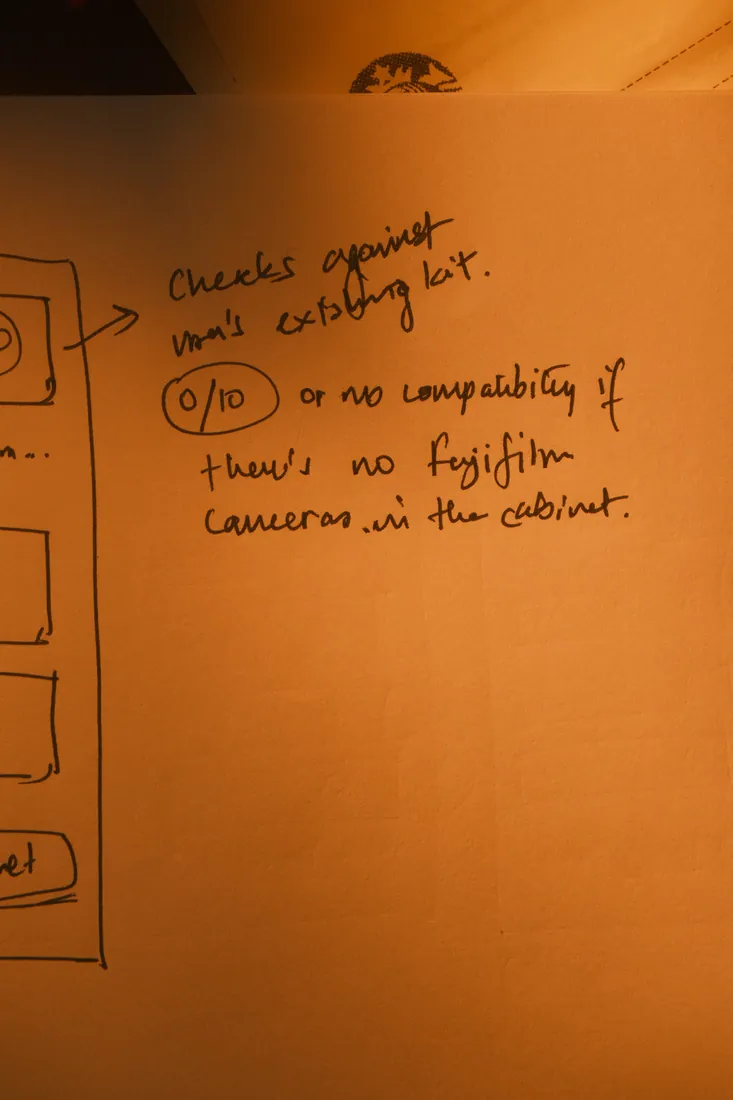 Checks against
user's existing kit.
0/10 or no compatibility if
there's no fujifilm
cameras in the cabinet.
m...
net